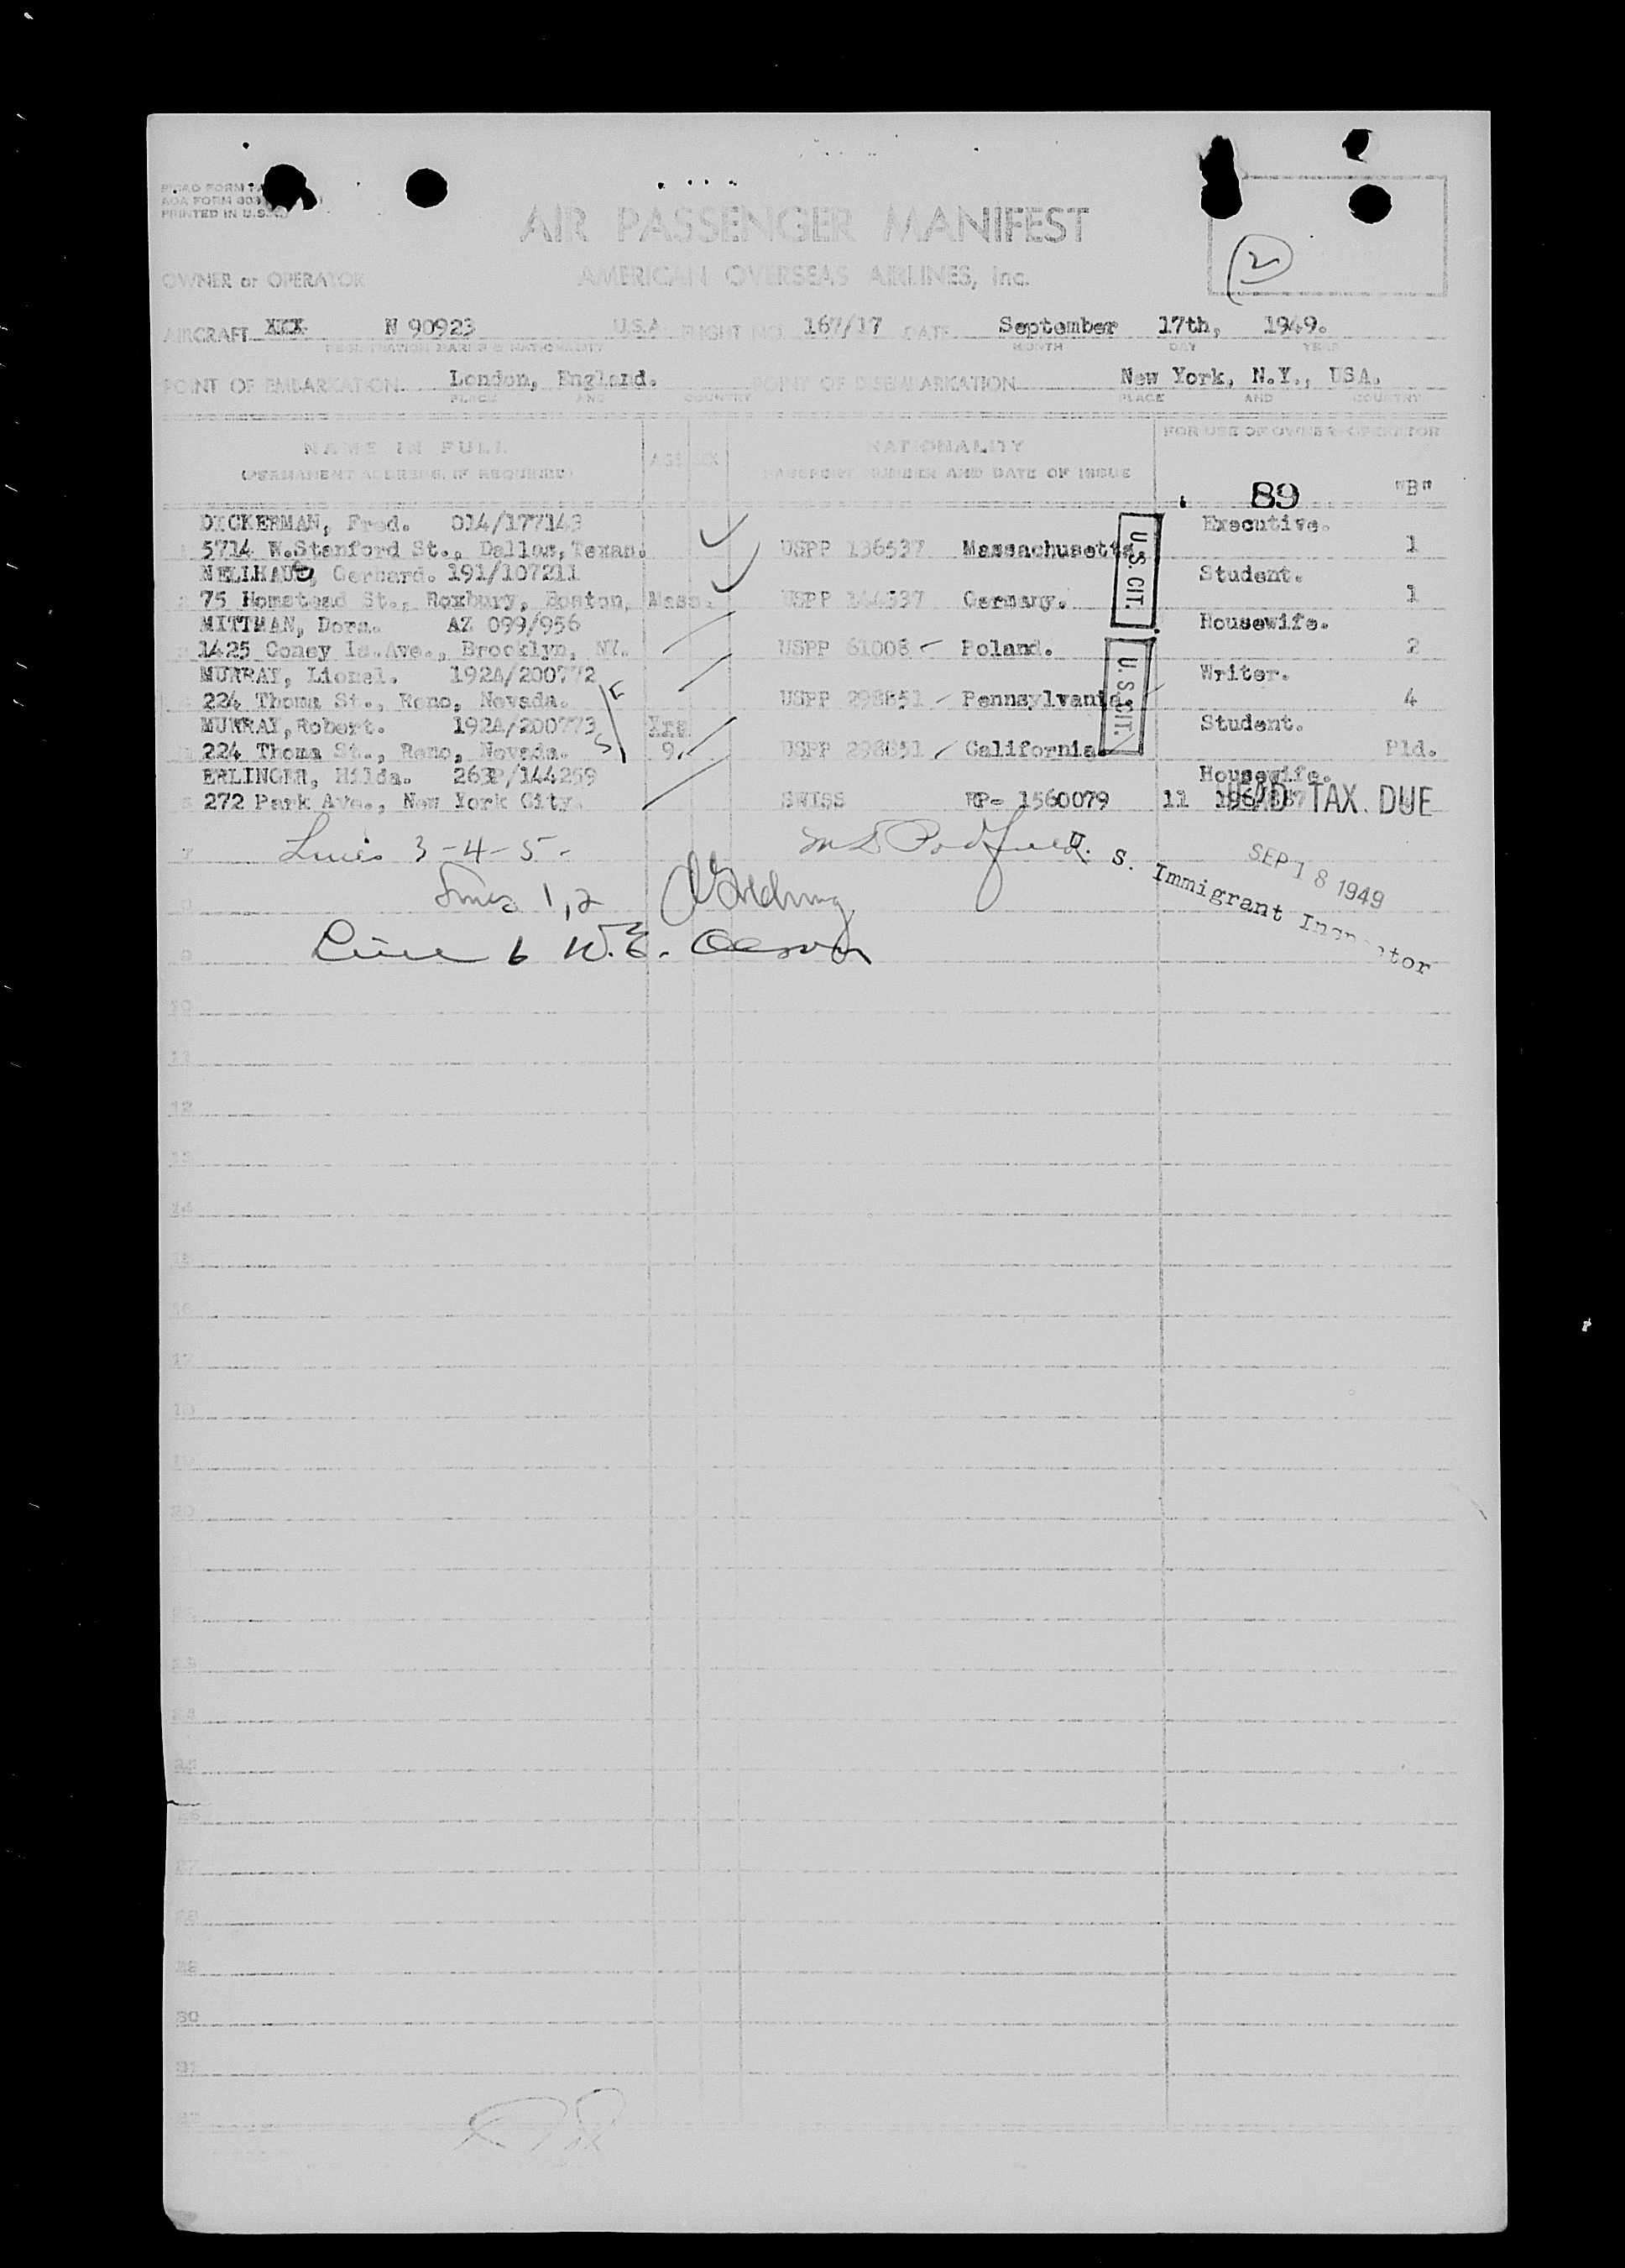 PRINTED IN U.S.A.
AIR PASSENGER MANIFEST
OWNER or OPERATOR AMERICAN OVERSEAS AIRLINES, Inc.
2
AIRCRAFT XXX N 90923 U.S.A FLIGHT NO. 167/17 DATE September 17th, 1949.
REGISTRATION MARKS & NATIONALITY MONTH DAY YEAR
POINT OF EMBARKATION London, England. POINT OF DISEMBARKATION New York, N.Y., USA.
PLACE AND COUNTRY PLACE AND COUNTRY
NAME IN FULL AGE SEX NATIONALITY FOR USE OF OWNER OR OPERATOR
(PERMANENT ADDRESS, IF REQUIRED) PASSPORT NUMBER AND DATE OF ISSUE
89 "B"
DICKERMAN, Fred. 014/177149 Executive.
1 5714 W.Stanford St., Dallas, Texas. USPP 136537 Massachusetts 1
U.S. CIT.
NELLHAUS, Gerhard. 191/107211 Student.
2 75 Homstead St., Roxbury, Boston, Mass. USPP 144537 Germany. 1
MITTMAN, Dora. AZ 099/956 Housewife.
3 1425 Coney Is.Ave., Brooklyn, NY. USPP 61008 Poland. 2
U.S. CIT.
MURRAY, Lionel. 192A/200772 Writer.
4 224 Thoma St., Reno, Nevada. USPP 298851 Pennsylvania. 4
MURRAY, Robert. 192A/200773 Yrs Student.
224 Thoma St., Reno, Nevada. 9. USPP 298851 California Pld.
ERLINGER, Hilda. 263P/144259 Housewife.
272 Park Ave., New York City. SWISS RP- 1560079 11
HEAD TAX DUE
7 Lines 3-4-5-
U. S. Immigrant Inspector
SEP 18 1949
Lines 1,2
9 Line 6 W.E. Olson
10
11
12
13
14
15
16
17
18
19
20
21
22
23
24
25
26
27
28
29
30
31